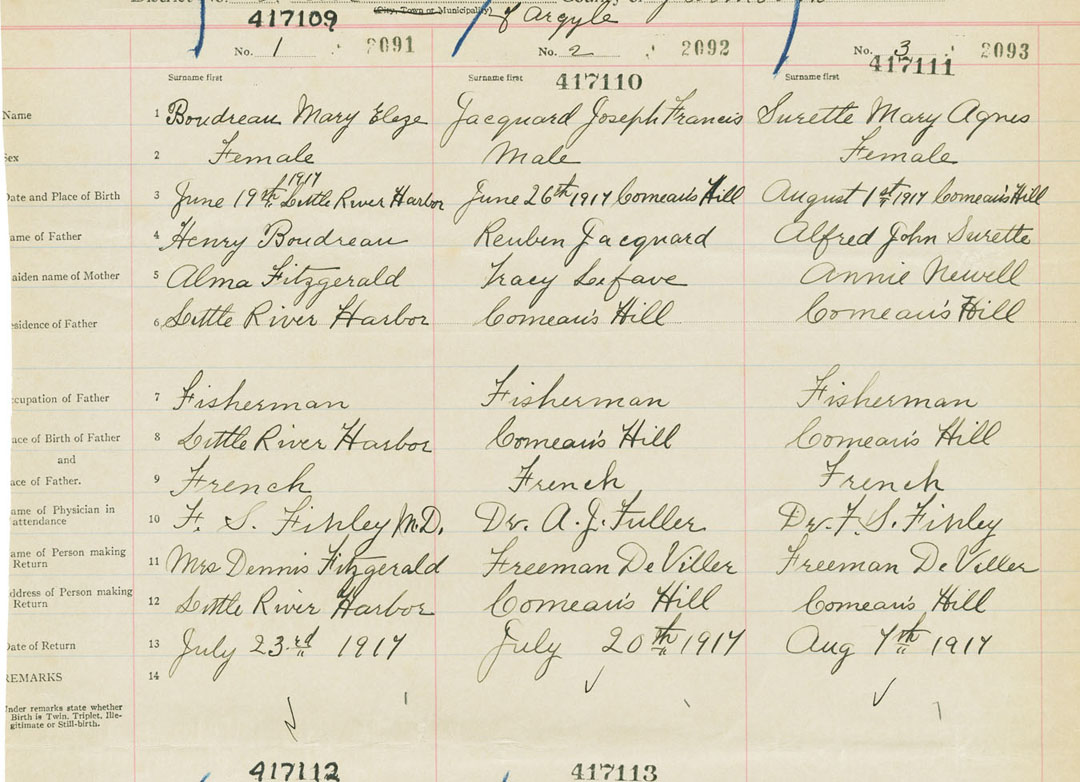 (City, Town or Municipality) of Argyle
417109
No. 1 2091 No. 2 2092 No. 3 2093
417110 417111
Surname first Surname first Surname first
Name 1 Boudreau Mary Eleze Jacquard Joseph Francis Surette Mary Agnes
Sex 2 Female Male Female
Date and Place of Birth 3 June 19th 1917 Little River Harbor June 26th 1917 Comeau's Hill August 1st 1917 Comeau's Hill
ame of Father 4 Henry Boudreau Reuben Jacquard Alfred John Surette
aiden name of Mother 5 Alma Fitzgerald Tracy Lefave Annie Newell
esidence of Father 6 Little River Harbor Comeau's Hill Comeau's Hill
ccupation of Father 7 Fisherman Fisherman Fisherman
ace of Birth of Father 8 Little River Harbor Comeau's Hill Comeau's Hill
and
ace of Father. 9 French French French
ame of Physician in attendance 10 F. S. Finley M.D. Dr. A. J. Fuller Dr. F. S. Finley
ame of Person making Return 11 Mrs Dennis Fitzgerald Freeman DeViller Freeman DeViller
ddress of Person making Return 12 Little River Harbor Comeau's Hill Comeau's Hill
Date of Return 13 July 23rd 1917 July 20th 1917 Aug 7th 1917
REMARKS 14
nder remarks state whether
Birth is Twin, Triplet, Ille-
gitimate or Still-birth.
417112 417113